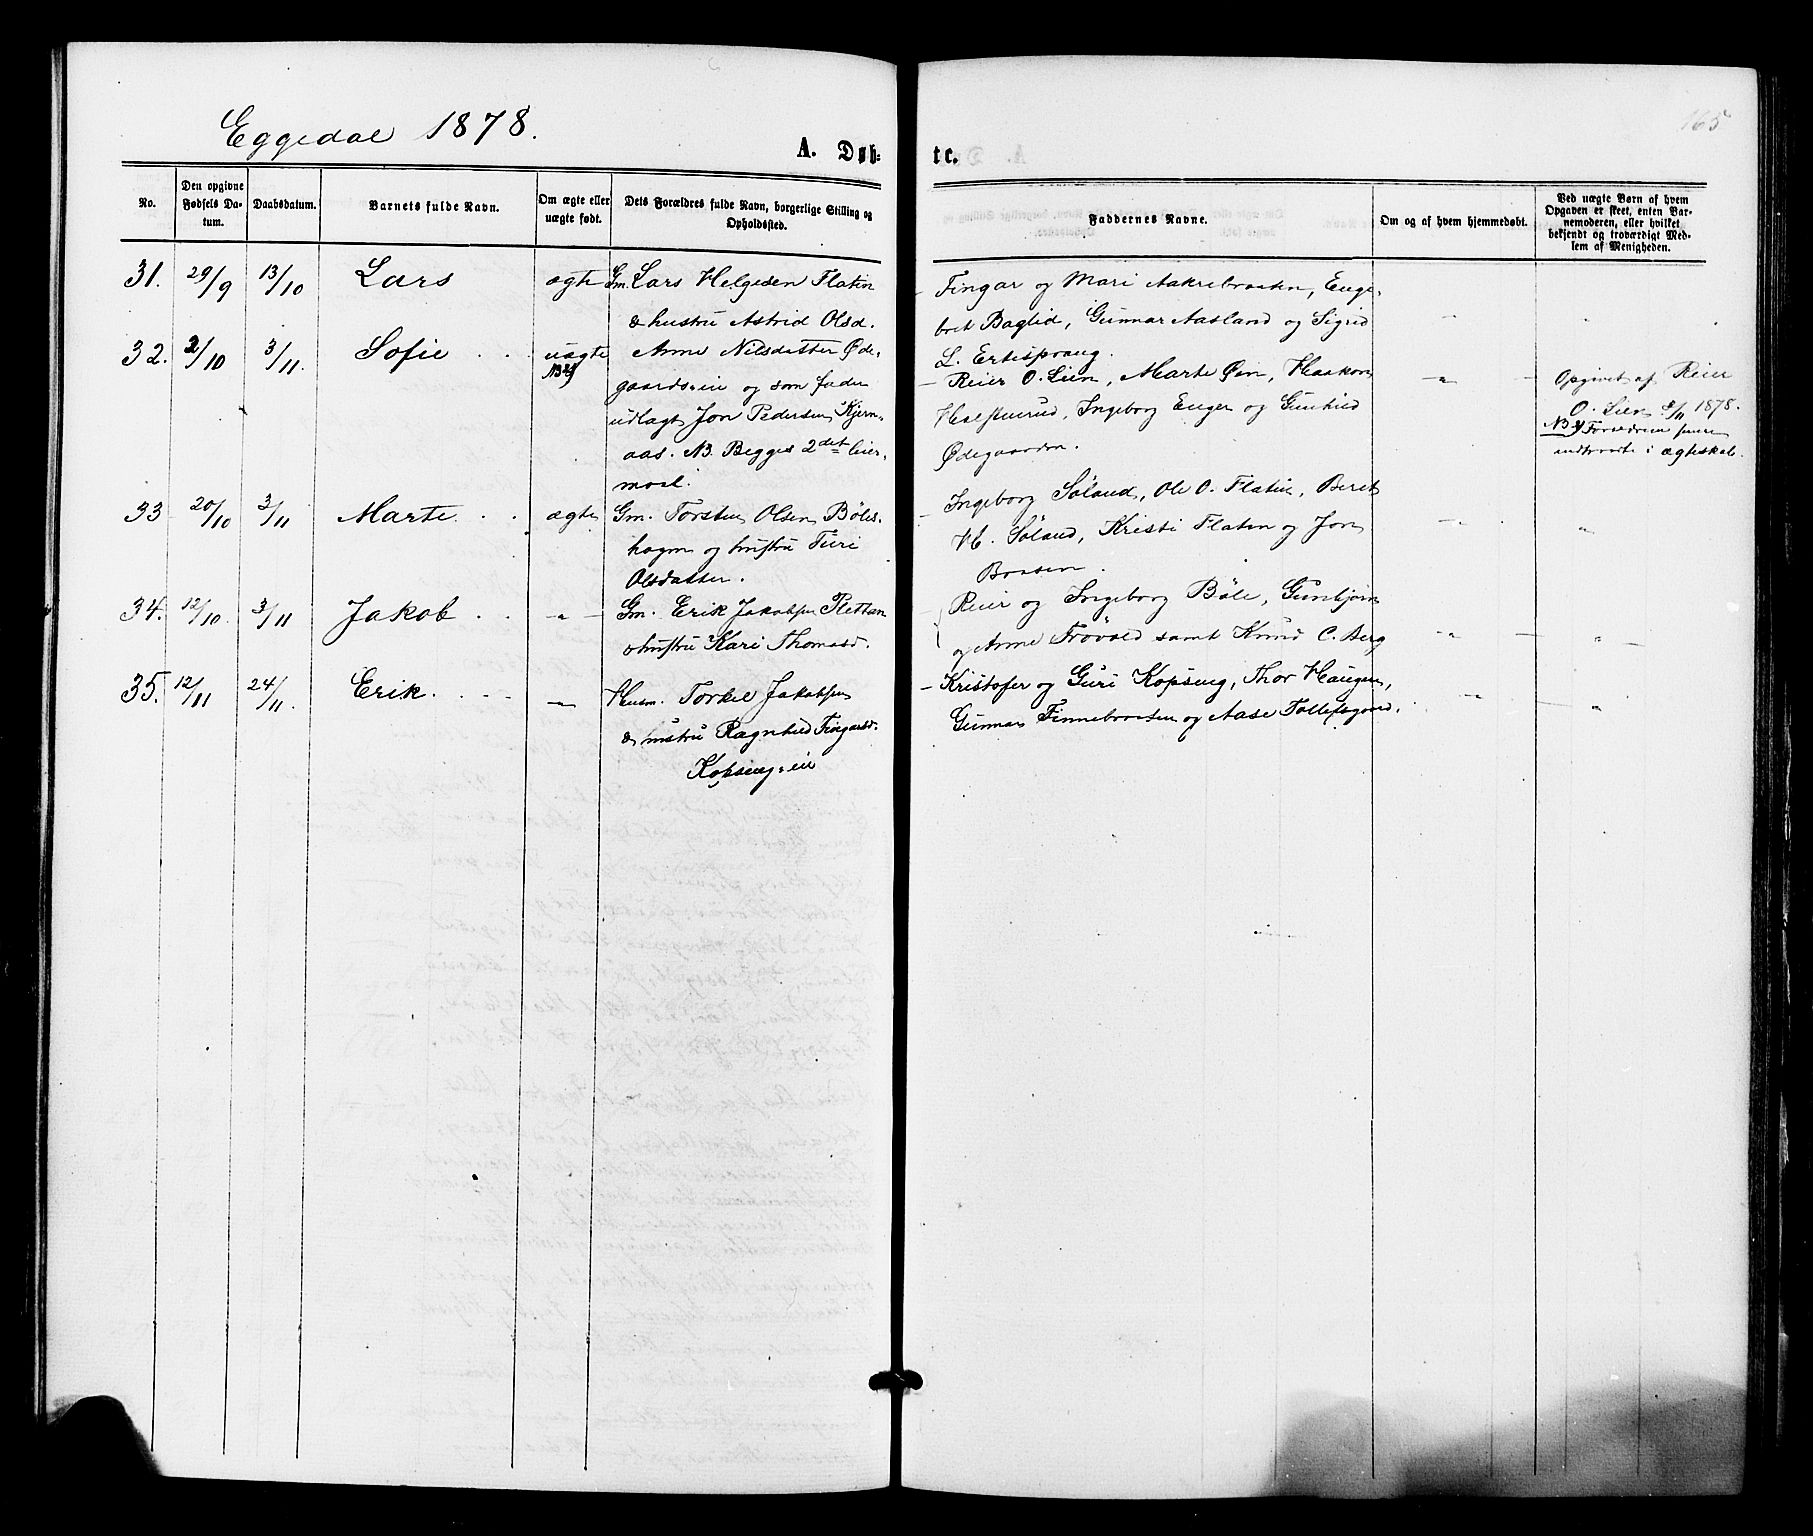 Eggedal 1878.
165
A. Døb-
te.
No.
Den opgivne Fødsels Datum.
Daabsdatum.
Barnets fulde Navn.
Om ægte eller uægte født.
Dets Forældres fulde Navn, borgerlige Stilling og Opholdssted.
Faddernes Navne.
Om og af hvem hjemmedøbt.
Ved uægte Børn af hvem Opgaven er skeet, enten Barnemoderen, eller hvilket bekjendt og troværdigt Medlem af Menigheden.
31. 29/9 13/10 Lars ægte Gm. Lars Helgesen Flatin
& hustru Astrid Olsd.
- Fingar og Mari Aakrebraaten, Enge-
bret Baglid, Gunnar Aasland og Sigrid
L. Ertesprang.
32. 2/10 3/11. Sofie . . uægte Anne Nilsdatter Øde-
NB 1)
gaardseie og som fader
udlagt Jon Pedersen Kjern-
aas. NB. Begges 2det leier-
maal.
- Reier O. Lien, Marte Øen, Haakon
Halstenrud, Ingeborg Enger og Gunhild
Ødegaarden.
Opgivet af Reier
O. Lien 3/11 1878.
NB 1) Forældrene senere
indtraadte i ægteskab.
33 20/10 3/11 Marte . . ægte Gm. Torsten Olsen Böles-
hagen og hustru Turi
Olsdatter.
- Ingeborg Söland, Ole O. Flatin, Beret
H. Söland, Kristi Flaten og Jon
Braaten.
34. 12/10. 3/11 Jakob . . -"- Gm. Erik Jakobsen Plettan
& hustru Kari Thomasd.
- Reier og Ingeborg Böle, Gunbjørn
og Anne Frövold samt Knud C. Berg
35. 12/11 24/11. Erik. . . - Husm. Torkel Jakobsen
& hustru Ragnhild Fingarsd.
Kopseng-eie
- Kristofer og Guri Kopseng, Thor Haugen,
Gunnar Finnebraaten og Aase Tollefsgard.